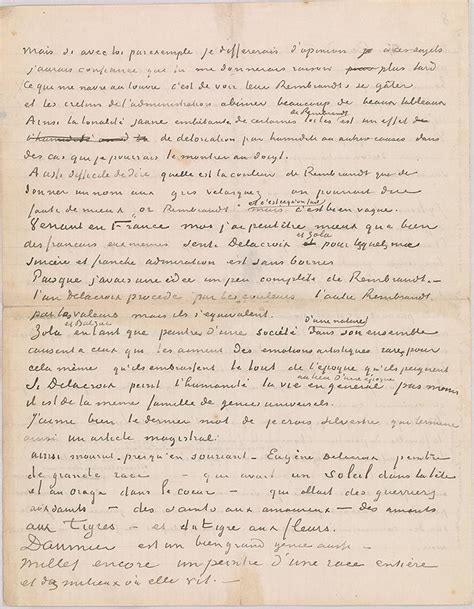 mais si avec toi par exemple je differerais d'opinion à ces sujets
j'aurais confiance que tu me donnerais raison plus tard
Ce que me navre au louvre c'est de voir leur Rembrandts se gâter
et les cretins de l'administration abimer beaucoup de beaux tableaux
Ainsi la tonalité jaune embêtante de certaines toiles de Rembrandt c'est un effet de
de deterioration par humidité ou autres causes dans
des cas que je pourrais te montrer au doigt.
Aussi difficile de dire quelle est la couleur de Rembrandt que de
donner un nom aux gris velasquez on pourrait dire
faute de mieux "or Rembrandt" et c'est ce qu'on fait mais c'est bien vague.
Venant en France moi j'ai peutêtre mieux que bien
des français eux memes senti Delacroix et Zola pour lesquels ma
sincère et franche admiration est sans bornes
Puisque j'avais une idée un peu complète de Rembrandt. –
l'un delacroix procède par les couleurs l'autre Rembrandt
par les valeurs mais ils s'equivalent.
Zola et Balzac en tant que peintres d'une société d'une nature dans son ensemble
causent à ceux qui les aiment des emotions artistiques rares pour
cela même qu'ils embrassent le tout de l'epoque qu'ils peignent
Si Delacroix peint l'humanité la vie en general au lieu d'une epoque pas moins
il est de la meme famille de genies universels.
J'aime bien le dernier mot de je crois silvestre qui termine
aussi un article magistral:
ainsi mourut – presqu'en souriant – Eugène Delacroix peintre
de grande race – qui avait un soleil dans la tête
et un orage dans le coeur – qui allait des guerriers
aux saints – des saints aux amoureux – des amants
aux tigres – et du tigre aux fleurs.
Daumier est un bien grand genie aussi –
Millet encore un peintre d'une race entière
et des milieux où elle vit. –